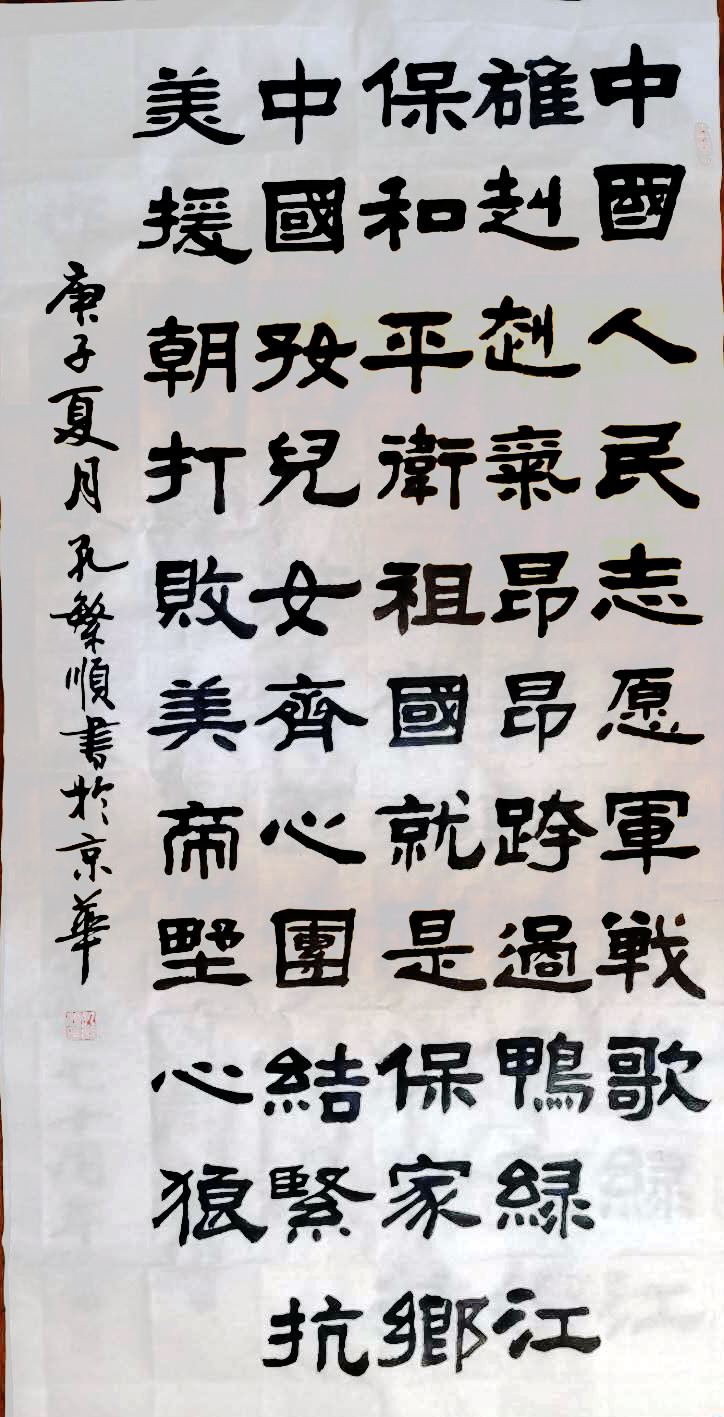 中國人民志愿軍戦歌
雄赳赳氣昂昂跨過鴨緑江
保和平衛祖國就是保家鄉
中國好兒女齊心團結緊抗
美援朝打敗美帝野心狼
庚子夏月孔繁順書於京華